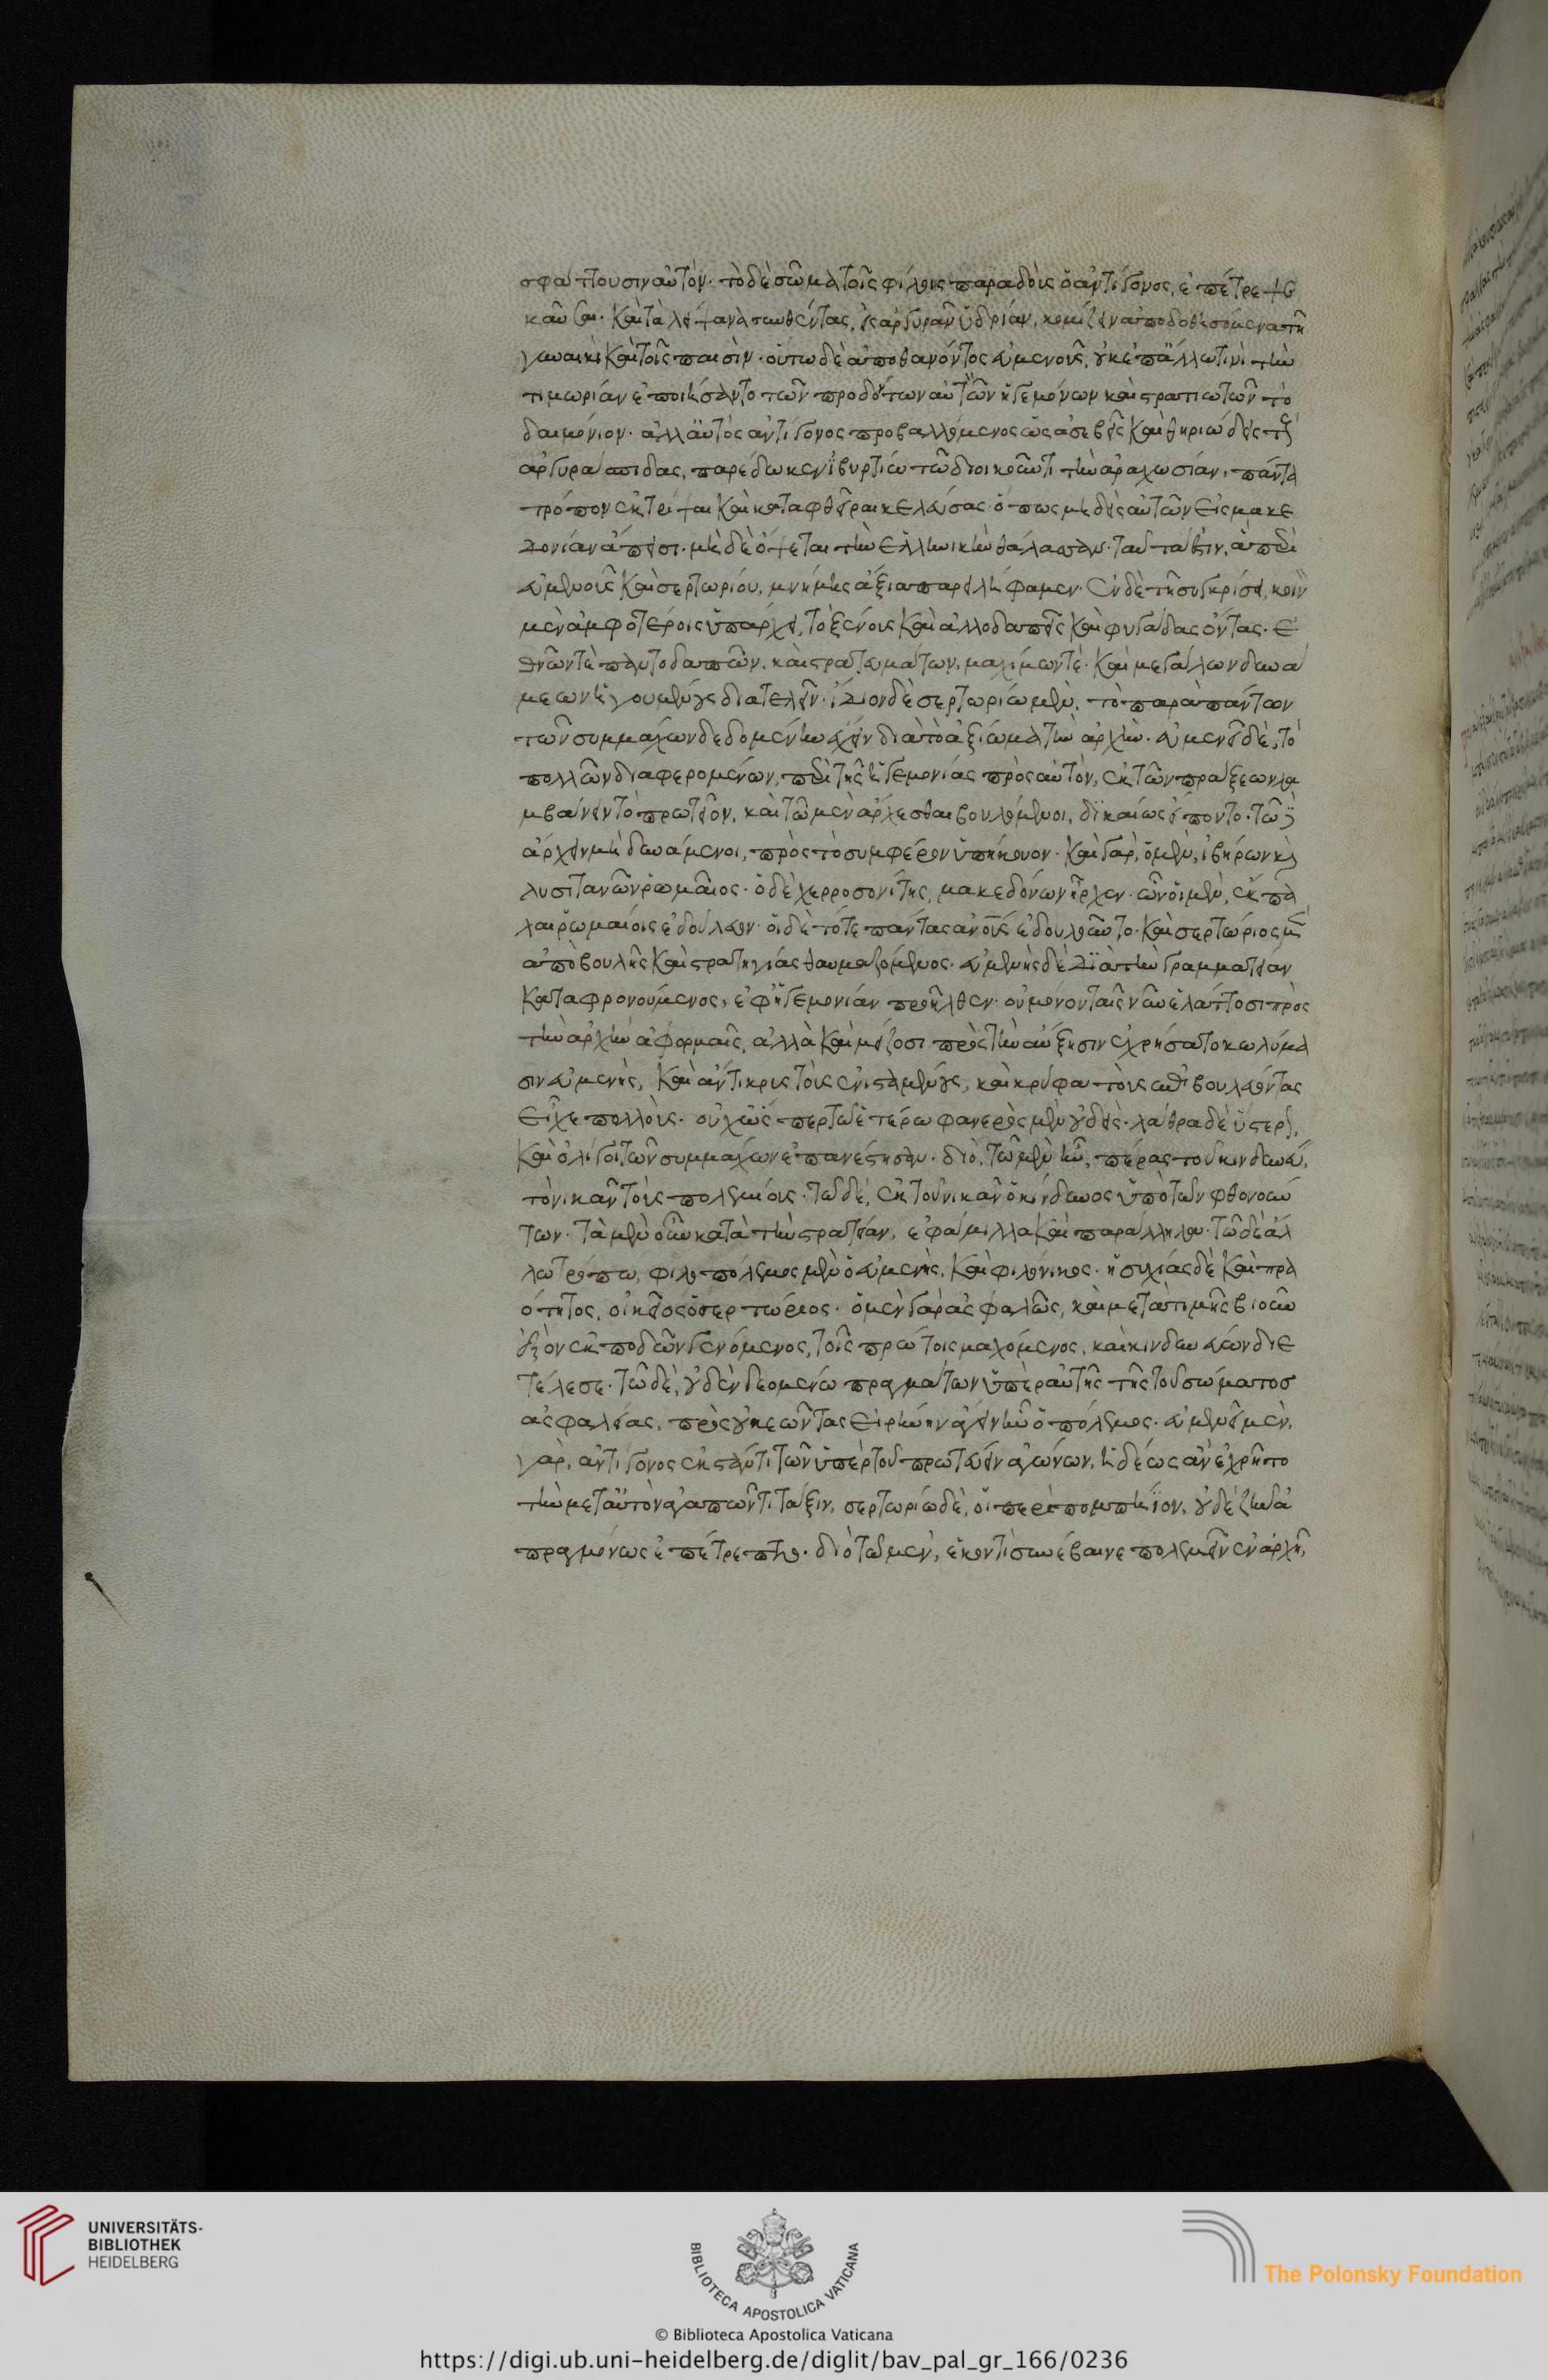 σφάττουσιν αὐτόν· τὸ δὲ σῶμα τοῖς φίλοις παραδοὺς ὁ ἀντίγονος, ἐπέτρεψε
καῦσαι· καὶ τὰ λείψανα συνθέντας, εἰς ἀργυρᾶν ὑδρίαν, κομίζειν ἀποδοθησόμενα τῇ
γυναικὶ καὶ τοῖς παισὶν· οὕτω δὲ ἀποθανόντος εὐμενοῦς, οὐκ ἐπάλλω τινὶ τὴν
τιμωρίαν ἐποιήσαντο τῶν προδότων αὐτῶν ἡγεμόνων καὶ στρατιωτῶν τὸ
δαιμόνιον· ἀλλ' αὐτὸς ἀντίγονος προβαλλόμενος ὡς ἀσεβεῖς καὶ θηριώδεις τοὺς
ἀργυράσπιδας, παρέδωκεν ἰβυρτίω τῶ διοικοῦντι τὴν ἀραχωσίαν, πάντα
τρόπον ἐκτρίψαι καὶ καταφθεῖραι κελεύσας· ὅπως μηδεὶς αὐτῶν εἰς μακε
δονίαν ἄπεισι· μηδὲ ὄψεται τὴν ἑλληνικὴν θάλασσαν· ταῦτά ἐστιν, ἃ περὶ
εὐμενοῦς καὶ σερτωρίου, μνήμης ἄξια παρειλήφαμεν· ἐν δὲ τῇ συγκρίσει, κοινὸν
μὲν ἀμφοτέροις ὑπάρχει, τὸ ξένους καὶ ἀλλοδαποὺς καὶ φυγάδας ὄντας· ἐ
θνῶν τὲ παντοδαπῶν, καὶ στρατευμάτων, μαχίμων τὲ· καὶ μεγάλων δυνά
μεων ἡγουμένους διατελεῖν· ἴδιον δὲ σερτωρίω μὲν, τὸ παρὰ πάντων
τῶν συμμάχων δεδομένην ἔχειν διὰ τὸ ἀξίωμα τὴν ἀρχὴν· εὐμενεῖ δὲ, τὸ
πολλῶν διαφερομένων, περὶ τῆς ἡγεμονίας πρὸς αὐτὸν, ἐκ τῶν πράξεων λα
μβάνειν τὸ πρωτεῖον, καὶ τῶ μὲν ἄρχεσθαι βουλόμενοι, δικαίως εἵποντο· τῶ δὲ
ἄρχειν μὴ δυνάμενοι, πρὸς τὸ συμφέρον ὑπήκουον· καὶ γὰρ, ὁ μὲν, ἰβήρων καὶ
λυσιτανῶν ῥωμαῖος· ὁ δὲ χερρονσίτης, μακεδόνων ἦρχεν· ὧν οἱ μὲν, ἔκπα
λαι ῥωμαίοις ἐδούλευον· οἱ δὲ τότε πάντας ἀνους ἐδουλοῦντο· καὶ σερτώριος μὲν
ἀπὸ βουλῆς καὶ στρατηγίας θαυμαζόμενος· εὐμενὴς δὲ διὰ τὴν γραμματείαν
καταφρονούμενος, ἐφ' ἡγεμονίαν προῆλθεν· οὐ μόνον ταῖς νῦν ἐλάττοσι πρὸς
τὴν ἀρχὴν ἀφορμαῖς, ἀλλὰ καὶ μείζοσι πρὸς τὴν αὔξησιν ἐχρήσατο κωλύμα
σιν εὐμενὴς, καὶ ἄντικρυς τοὺς ἐνισταμένους, καὶ κρύφα τοὺς ἐπιβουλεύοντας
εἶχε πολλοὺς· οὐχ ὥσπερ τῶ ἑτέρω φανερῶς μὲν οὐδεὶς· λάθρα δὲ ὕστερον,
καὶ ὀλίγοι τῶν συμμάχων ἐπανέστησαν· διὸ, τῶ μὲν ἦν, πέρας τοῦ κινδυνεύειν,
τὸ νικᾶν τοὺς πολεμίους· τῶ δὲ, ἐκ τοῦ νικᾶν ὁ κίνδυνος ὑπὸ τῶν φθονούν
των· τὰ μὲν οὖν κατὰ τὴν στρατείαν, ἐφάμιλλα καὶ παράλληλα· τῶ δὲ ἄλ
λω τρόπω, φιλοπόλεμος μὲν ὁ εὐμενὴς, καὶ φιλόνικος· ἡσυχίας δὲ καὶ πρα
ότητος, οἰκεῖος ὁ σερτώριος· ὁ μὲν γὰρ ἀσφαλῶς, καὶ μετὰ τιμῆς βιοῦν
ἐξὸν ἐκποδῶν γενόμενος, τοῖς πρώτοις μαχόμενος, καὶ κινδυνεύων διε
τέλεσε· τῶ δὲ, οὐδὲν δεομένω πραγμάτων ὑπὲρ αὐτῆς τῆς τοῦ σώματος
ἀσφαλείας, πρὸς οὐκ ἐῶντας εἰρήνην ἄγειν ἦν ὁ πόλεμος· εὐμενεῖ μὲν,
γὰρ, ἀντίγονος ἐκστάντι τῶν ὑπὲρ τοῦ πρωτεύειν ἀγώνων, ἡδέως ἂν ἐχρῆτο
τὴν μετ' αὐτὸν ἀγαπῶντι τάξιν, σερτωρίω δὲ, οἱ περὶ πομπήϊον, οὐδὲ ζῆν ἀ
πραγμόνως ἐπέτρεπον· διὸ τῶ μὲν, ἑκόντι συνέβαινε πολεμεῖν ἐν ἀρχῇ,
UNIVERSITÄTS-
BIBLIOTHEK
HEIDELBERG
BIBLIOTECA APOSTOLICA VATICANA
The Polonsky Foundation
© Biblioteca Apostolica Vaticana
https://digi.ub.uni-heidelberg.de/diglit/bav_pal_gr_166/0236